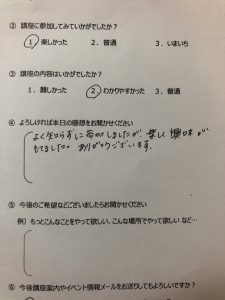 ② 講座に参加してみていかがでしたか?
1. 楽しかった 2. 普通 3. いまいち
③ 講座の内容はいかがでしたか?
1. 難しかった 2. わかりやすかった 3. 普通
④ よろしければ本日の感想をお聞かせください
よく知らずに参加しましたが、楽しく興味が
もてました。ありがとうございます。
⑤ 今後のご希望などございましたらお聞かせください
例）もっとこんなことをやって欲しい、こんな場所でやって欲しい など…
⑥ 今後講座案内やイベント情報メールをお送りしてもよろしいですか？